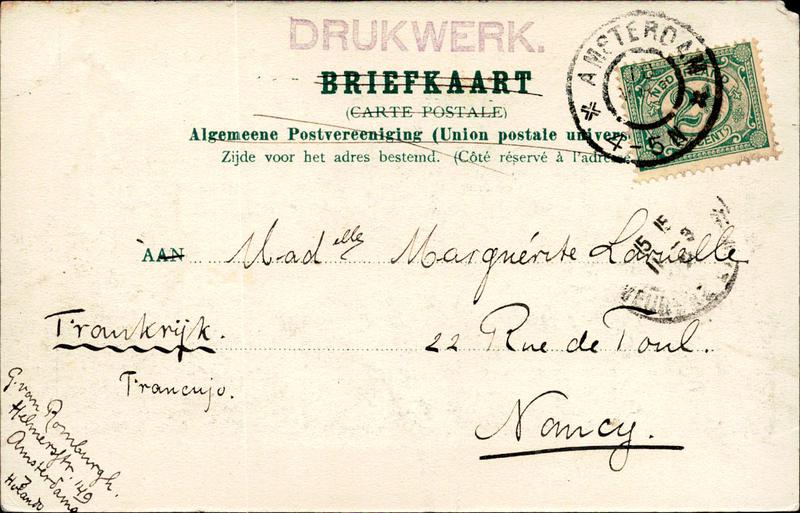 DRUKWERK.
BRIEFKAART
(CARTE POSTALE)
Algemeene Postvereeniging (Union postale univer
Zijde voor het adres bestemd. (Côté réservé à l'adresse
AMSTERDAM
4-5 N
AAN Madelle Marguérite
Frankrijk.
22 Rue de Toul.
Francujo.
Nancy.
G. van Romburgh.
Helmersstr. 149
Amsterdam